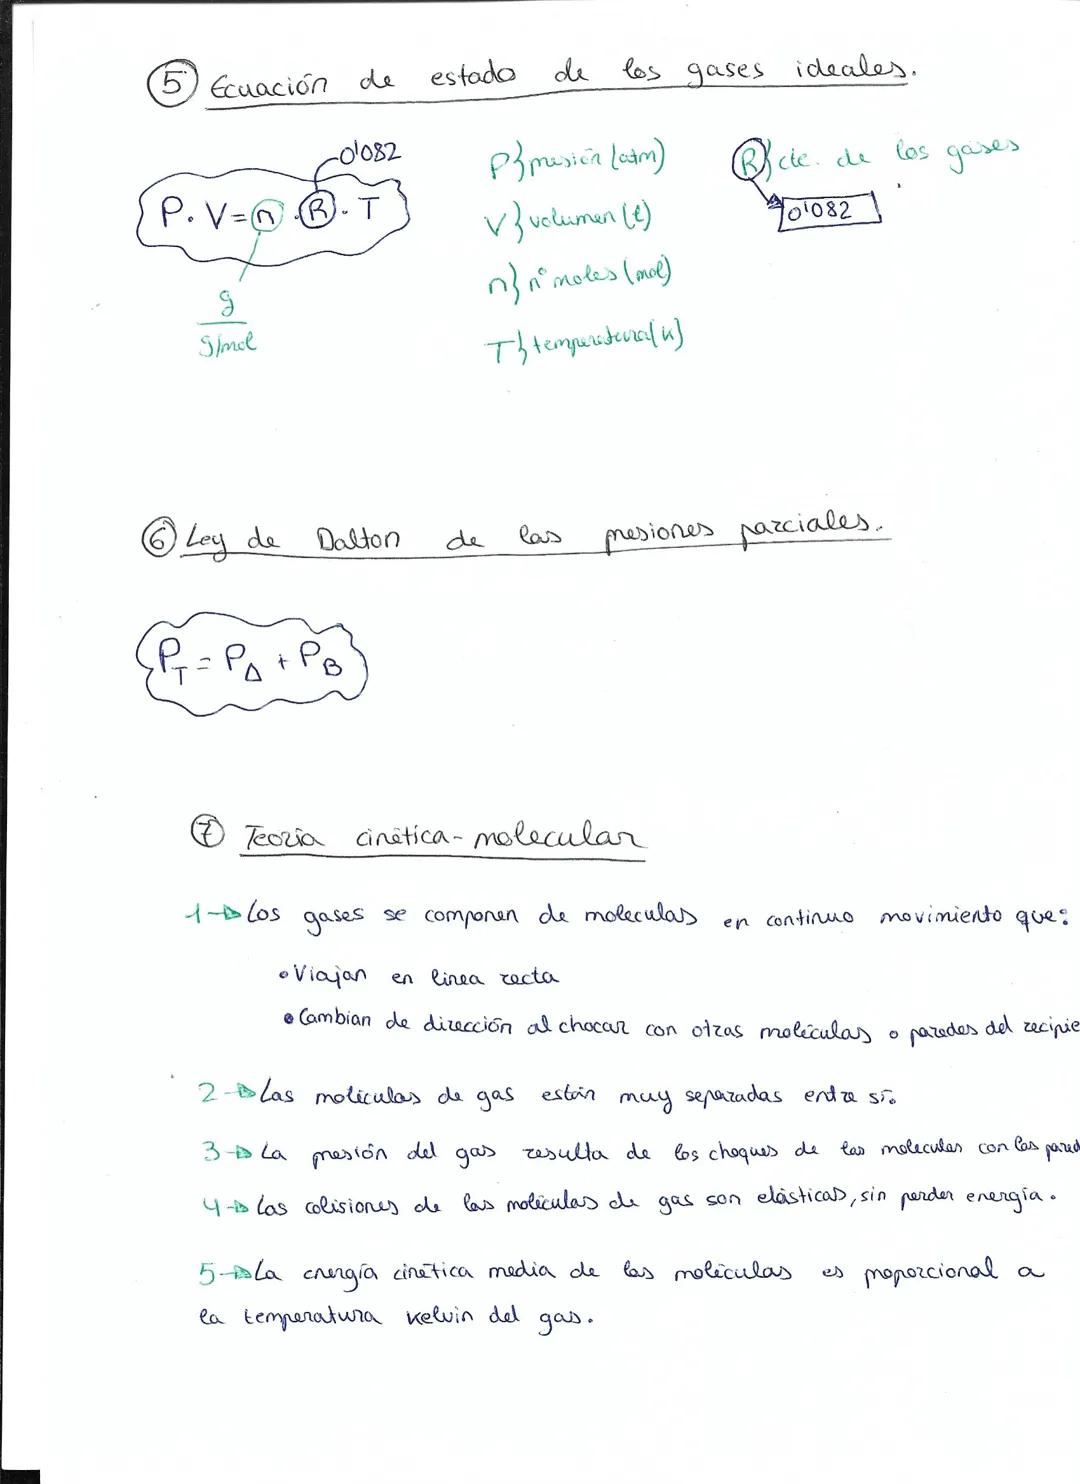 5 Ecuación de estado de los gases ideales.
0'082
P. V = n . R . T
g
g/mol
P} presión (atm)
V} volumen (l)
n} nº moles (mol)
T} temperatura (K)
R} cte. de los gases
0'082
6 Ley de Dalton de las presiones parciales.
PT = PA + PB
7 Teoría cinética-molecular
1→ Los gases se componen de moleculas en continuo movimiento que:
• Viajan en linea recta
• Cambian de dirección al chocar con otras moléculas o paredes del recipie
2→ Las moléculas de gas están muy separadas entre sí.
3→ La presión del gas resulta de los choques de las moleculas con las pared
4→ Las colisiones de las moléculas de gas son elásticas, sin perder energía.
5→ La energía cinética media de las moléculas es proporcional a
la temperatura kelvin del gas.